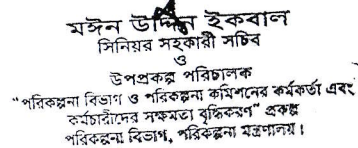 মঈন উদ্দিন ইকবাল
সিনিয়র সহকারী সচিব
ও
উপপ্রকল্প পরিচালক
"পরিকল্পনা বিভাগ ও পরিকল্পনা কমিশনের কর্মকর্তা এবং
কর্মচারীদের সক্ষমতা বৃদ্ধিকরণ" প্রকল্প
পরিকল্পনা বিভাগ, পরিকল্পনা মন্ত্রণালয়।